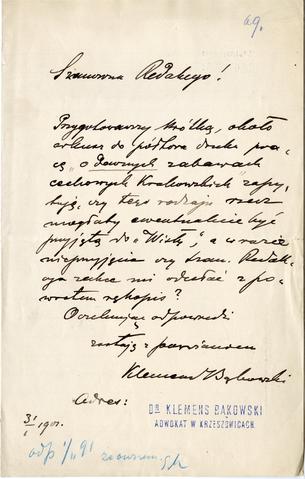 69.
Szanowna Redakcyo!
Przygotowawszy krótką, około
arkusza do półtora druku pra-
cę „o dawnych zabawach
cechowych Krakowskich" zapy-
tuję, czy tego rodzaju rzecz
mogłaby ewentualnie być
przyjętą do „Wisły", a w razie
nieprzyjęcia czy szan. Redak-
cya zechce mi odesłać z po-
wrotem rękopis?
Oczekując odpowiedzi
zostaję z poważaniem
Klemens Bąkowski
Adres:
DR KLEMENS BĄKOWSKI
ADWOKAT W KRZESZOWICACH
3/I 1901.
odp